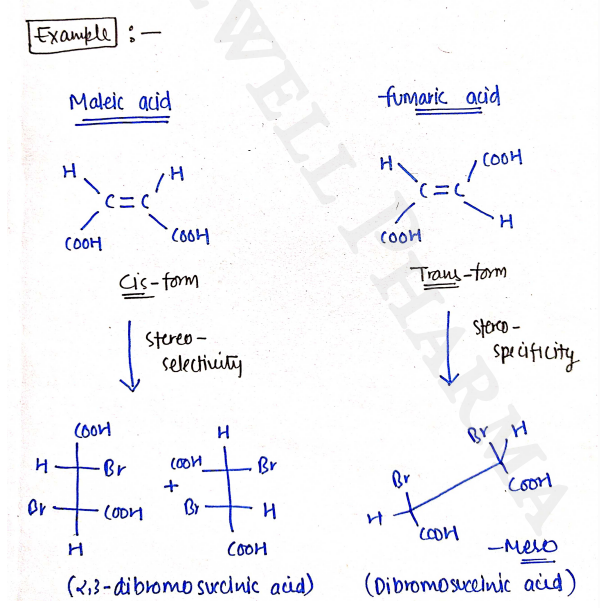 Example : —
Maleic acid
fumaric acid
H H
C = C
COOH COOH
H COOH
C = C
COOH H
Cis-form
Trans-form
stereo-
selectivity
stereo-
specificity
COOH
H Br
Br COOH
H
+
H
COOH Br
Br H
COOH
Br H
COOH
Br
H
COOH
-Meso
(2,3-dibromo succinic acid)
(Dibromosuccinic acid)
WELL PHARMA